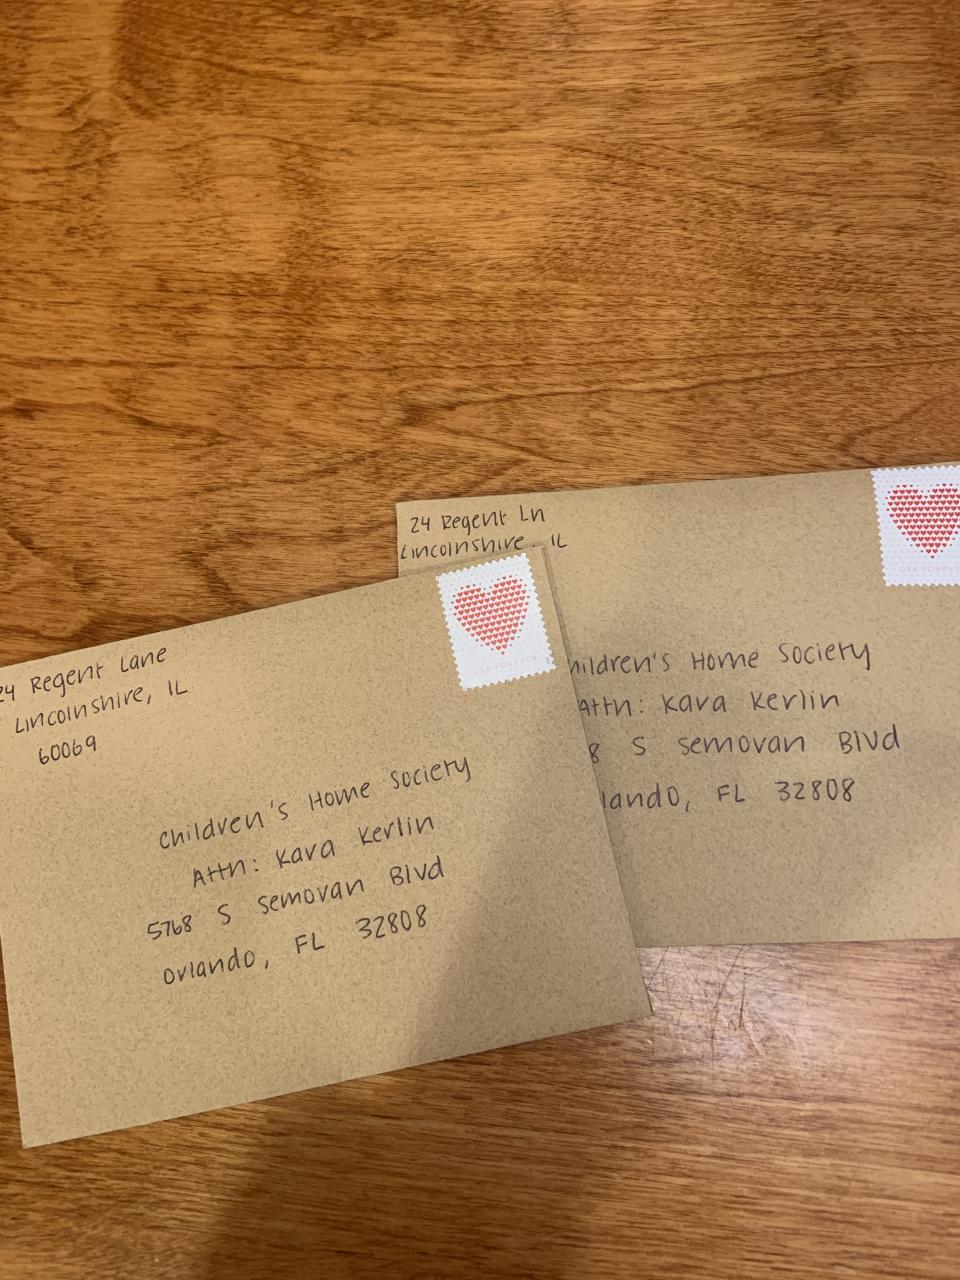 24 Regent Ln
Lincolnshire, IL
USA FOREVER
24 Regent Lane
Lincolnshire, IL
60069
USA FOREVER
Children's Home Society
Attn: Kara Kerlin
5768 S Semovan Blvd
Orlando, FL 32808
hildren's Home Society
Attn: Kara Kerlin
8 S Semovan Blvd
lando, FL 32808